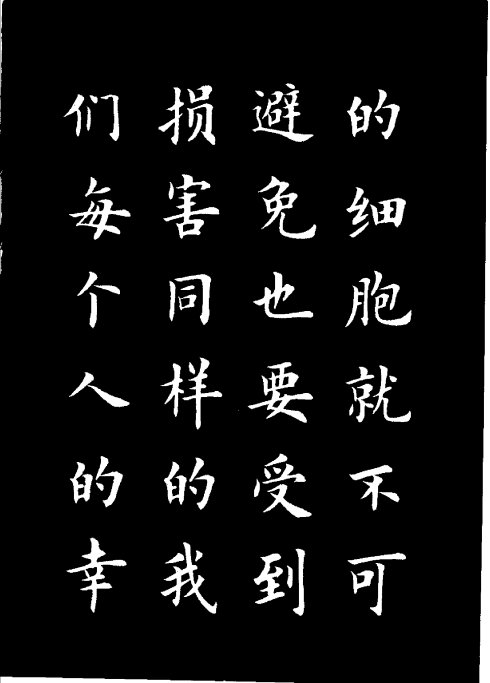 的细胞就不可
避免也要受到
损害同样的我
们每个人的幸